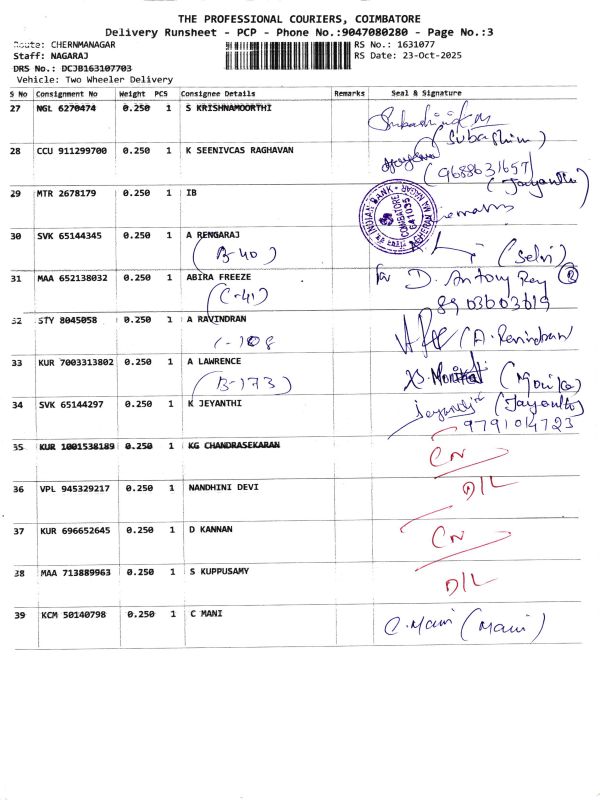 THE PROFESSIONAL COURIERS, COIMBATORE
Delivery Runsheet - PCP - Phone No.:9047080280 - Page No.:3
Route: CHERNMANAGAR RS No.: 1631077
Staff: NAGARAJ RS Date: 23-Oct-2025
DRS No.: DCJB163107703
Vehicle: Two Wheeler Delivery
S No Consignment No Weight PCS Consignee Details Remarks Seal & Signature
27 NGL 6270474 0.250 1 S KRISHNAMOORTHI
(Subashini)
28 CCU 911299700 0.250 1 K SEENIVCAS RAGHAVAN
9688631657
(Jayanthi)
29 MTR 2678179 0.250 1 IB
INDIAN BANK
COIMBATORE
641035
30 SVK 65144345 0.250 1 A RENGARAJ (Selvi)
(B-40)
31 MAA 652138032 0.250 1 ABIRA FREEZE for D. Antony Roy
(C-41) 8903603619
32 STY 8045058 0.250 1 A RAVINDRAN
C-108 (A. Ravindran
33 KUR 7003313802 0.250 1 A LAWRENCE
(B-173) (Monika)
34 SVK 65144297 0.250 1 K JEYANTHI (Jayanthi)
9791014723
35 KUR 1001538189 0.250 1 KG CHANDRASEKARAN CN
36 VPL 945329217 0.250 1 NANDHINI DEVI D/L
37 KUR 696652645 0.250 1 D KANNAN CN
38 MAA 713889963 0.250 1 S KUPPUSAMY D/L
39 KCM 50140798 0.250 1 C MANI C. Mani (Mani)